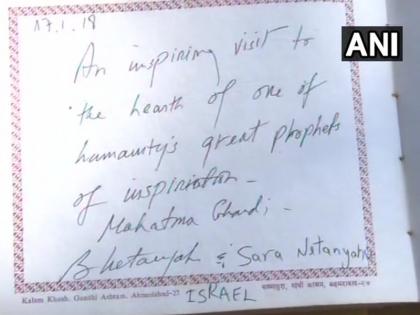 17.1.18
ANI
An inspiring visit to
the hearth of one of
humanity's great prophets
of inspiration -
Mahatma Ghandi -
B Netanyah & Sara Netanyahu
Kalam Khush, Gandhi Ashram, Ahmedabad-27
ISRAEL